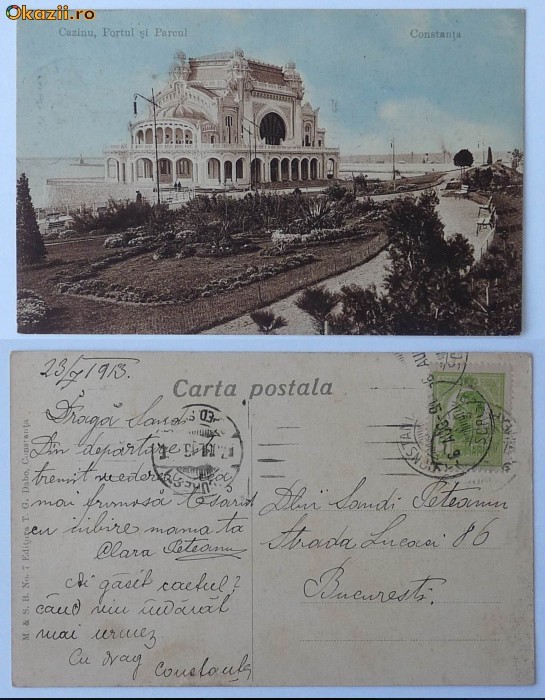 Okazii.ro
Cazinu, Portul și Parcul
Constanța
23/7 1913.
Carta postala
Dragă Sandi
Din depărtare
trimit vedere
mai frumosă
cu iubire mama ta
Clara Peteanu
Ai găsit caetul?
când viu îndărăt
mai urmez
Cu drag
Constanța
Dlui Sandi Peteanu
Strada Lucaci 86
București.
M. & S. B. No. 7 Editura T. G. Dabo, Constanța